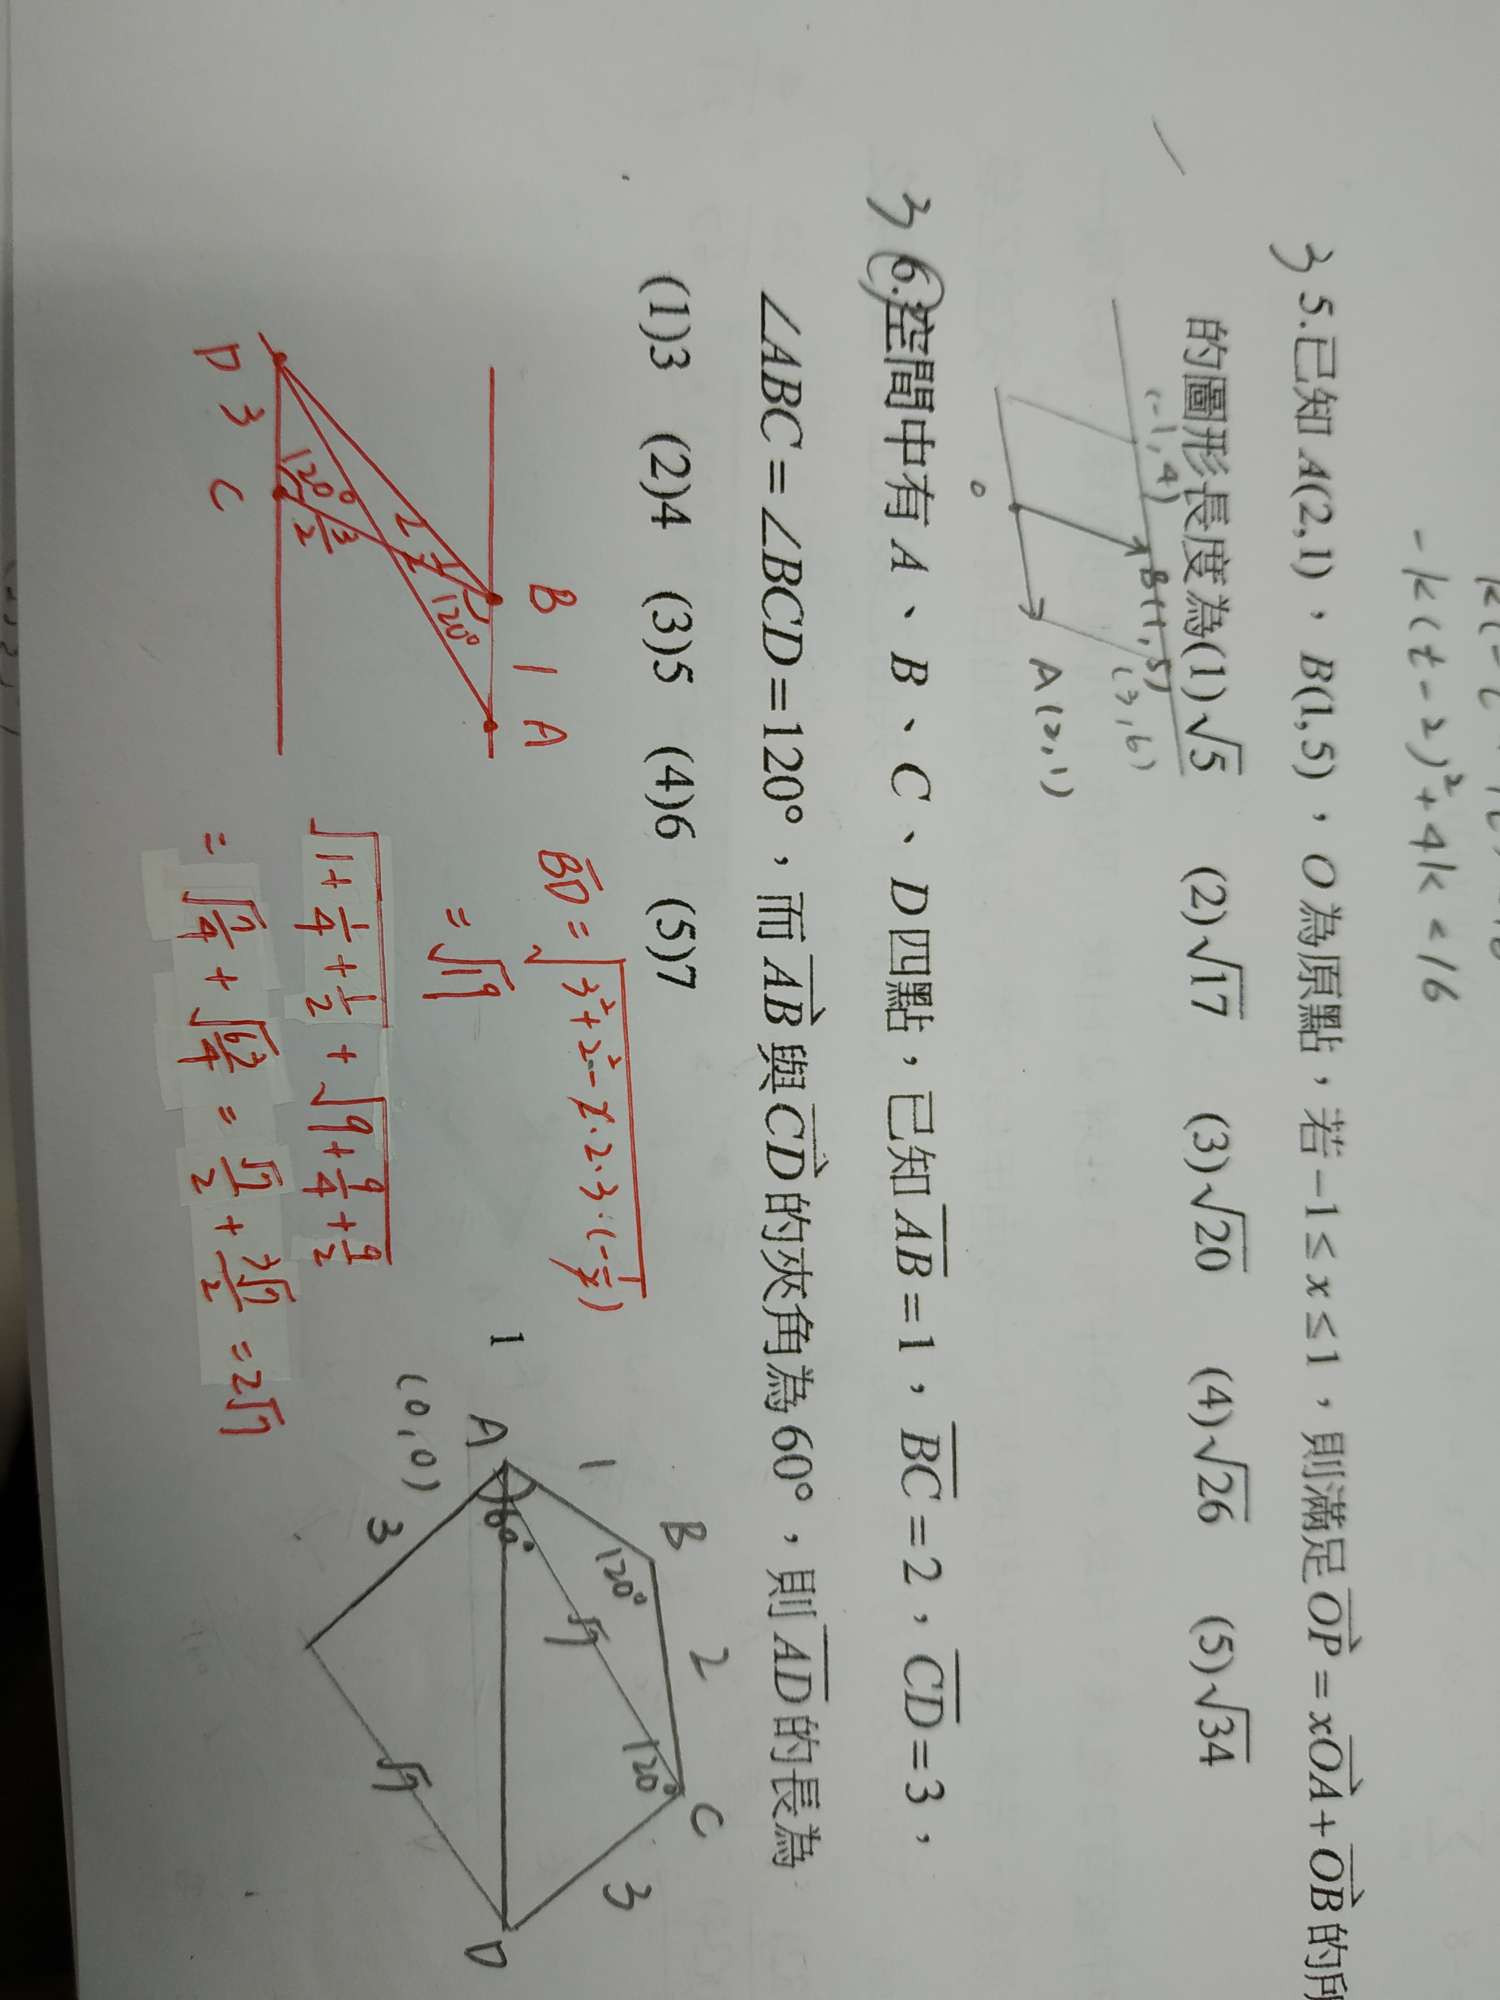 -k(t-2)²+4k=16
3 5.已知 A(2,1)，B(1,5)，O為原點，若 -1≤x≤1，則滿足 \overrightarrow{OP}=x\overrightarrow{OA}+\overrightarrow{OB} 的所
的圖形長度為(1)√5 (2)√17 (3)√20 (4)√26 (5)√34
(-1,4)
B(1,5)
(3,6)
O
A(2,1)
3 6.空間中有 A、B、C、D四點，已知 \overline{AB}=1，\overline{BC}=2，\overline{CD}=3，
∠ABC=∠BCD=120°，而 \overrightarrow{AB} 與 \overrightarrow{CD} 的夾角為60°，則 \overline{AD} 的長為
(1)3 (2)4 (3)5 (4)6 (5)7
B 1 A
120°
120°
3/2
D 3 C
\overline{BD}=√(3²+2²-2·2·3·(-1/2))
=√19
√(1+1/4+1/2)+√(9+9/4+9/2)
=√(7/4)+√(63/4)=√7/2+3√7/2=2√7
1
B 2 C
1
120°
120°
3
A
60°
√7
D
(0,0)
3
√7